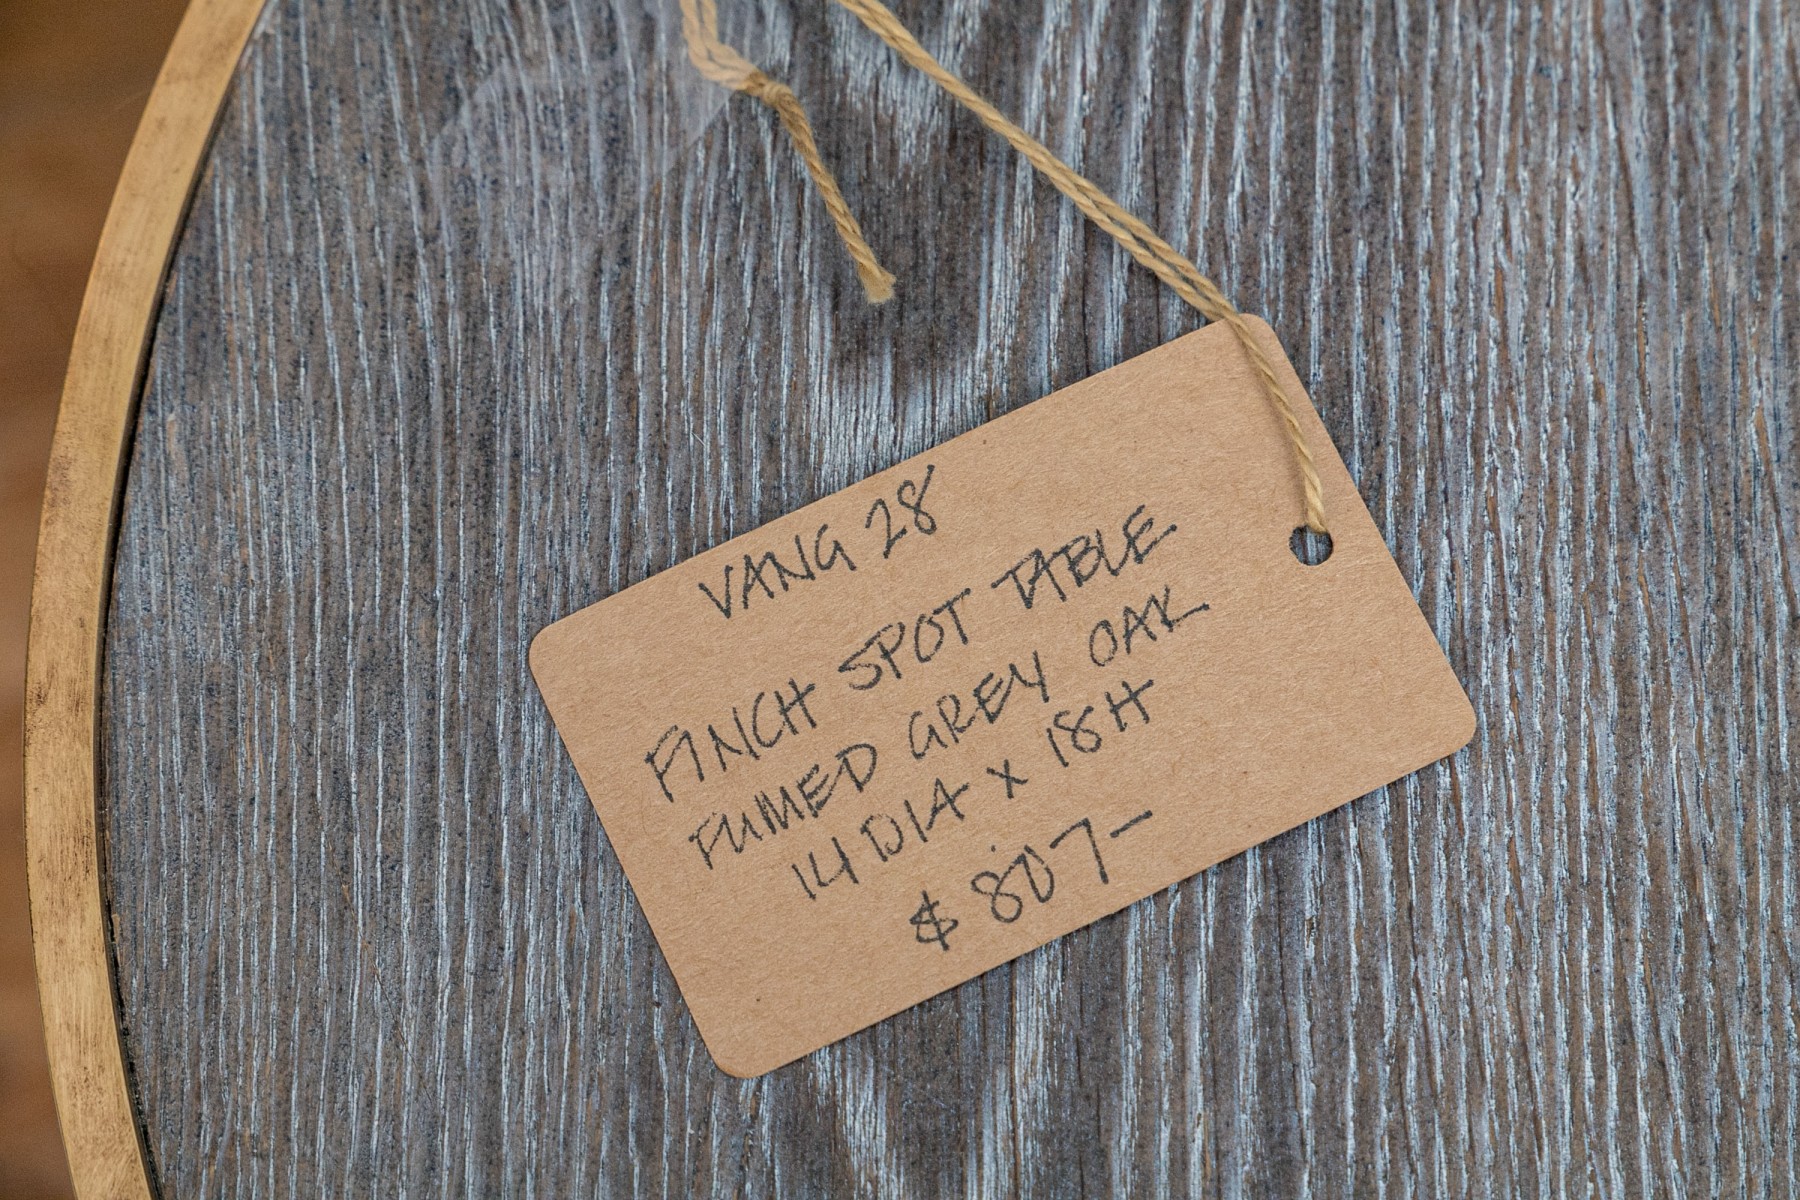 VANG 28
FINCH SPOT TABLE
FUMED GREY OAK
14 DIA x 18H
$ 807-